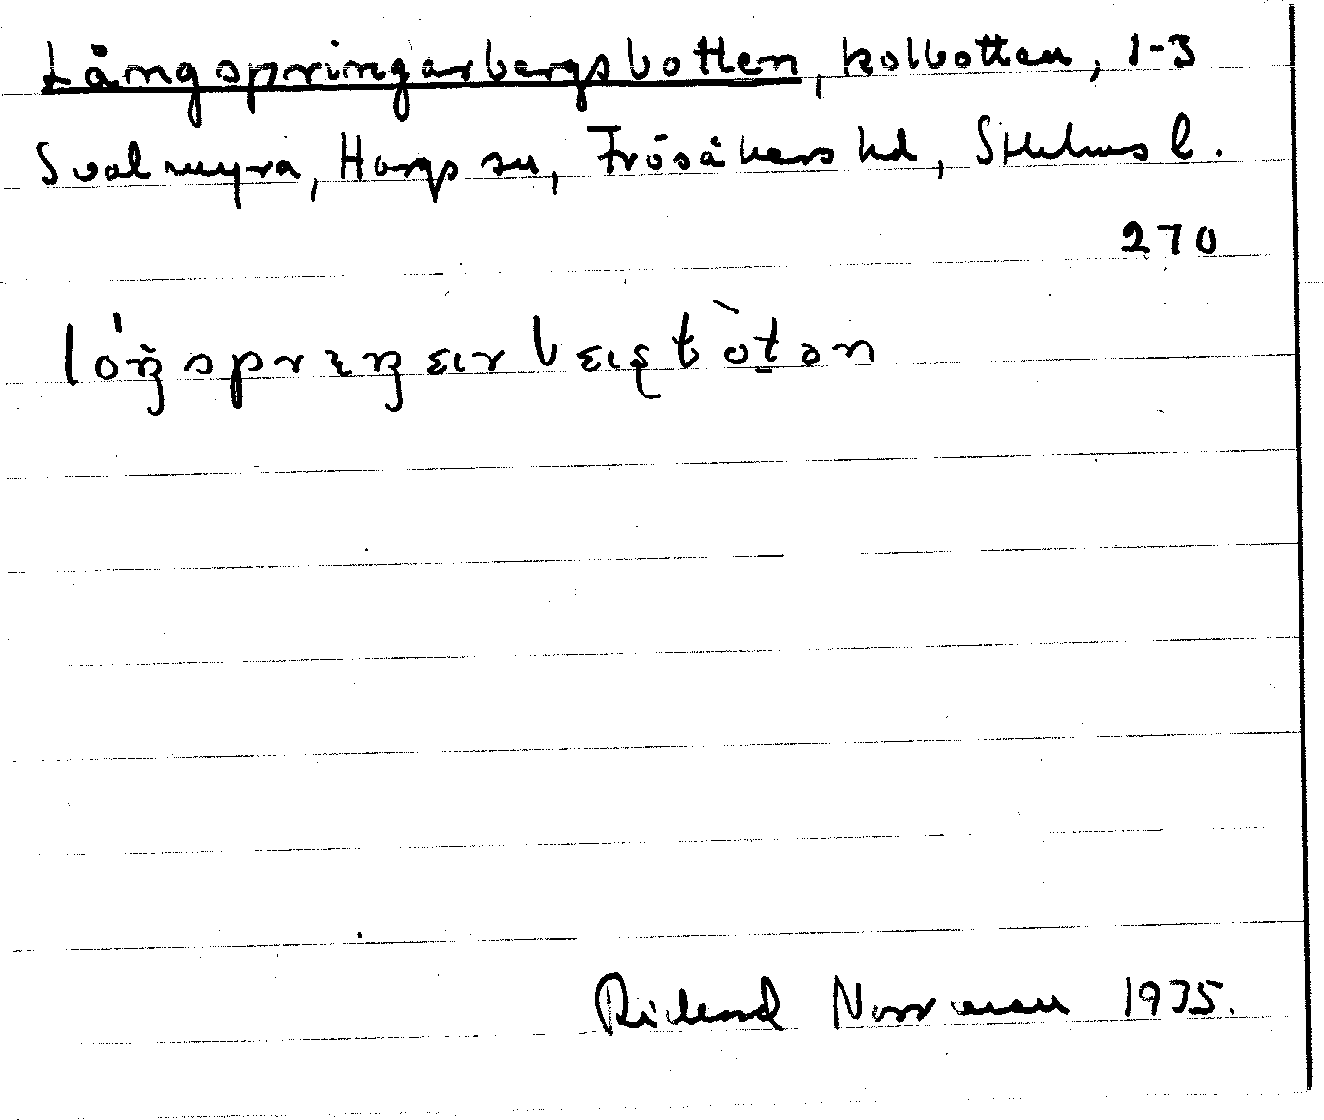 Långspringarbergsbotten, kolbotten, 1-3
Svalmyra, Hargs sn, Frösåkers hd, Sthlms l.
270
Richard Norrman 1935.